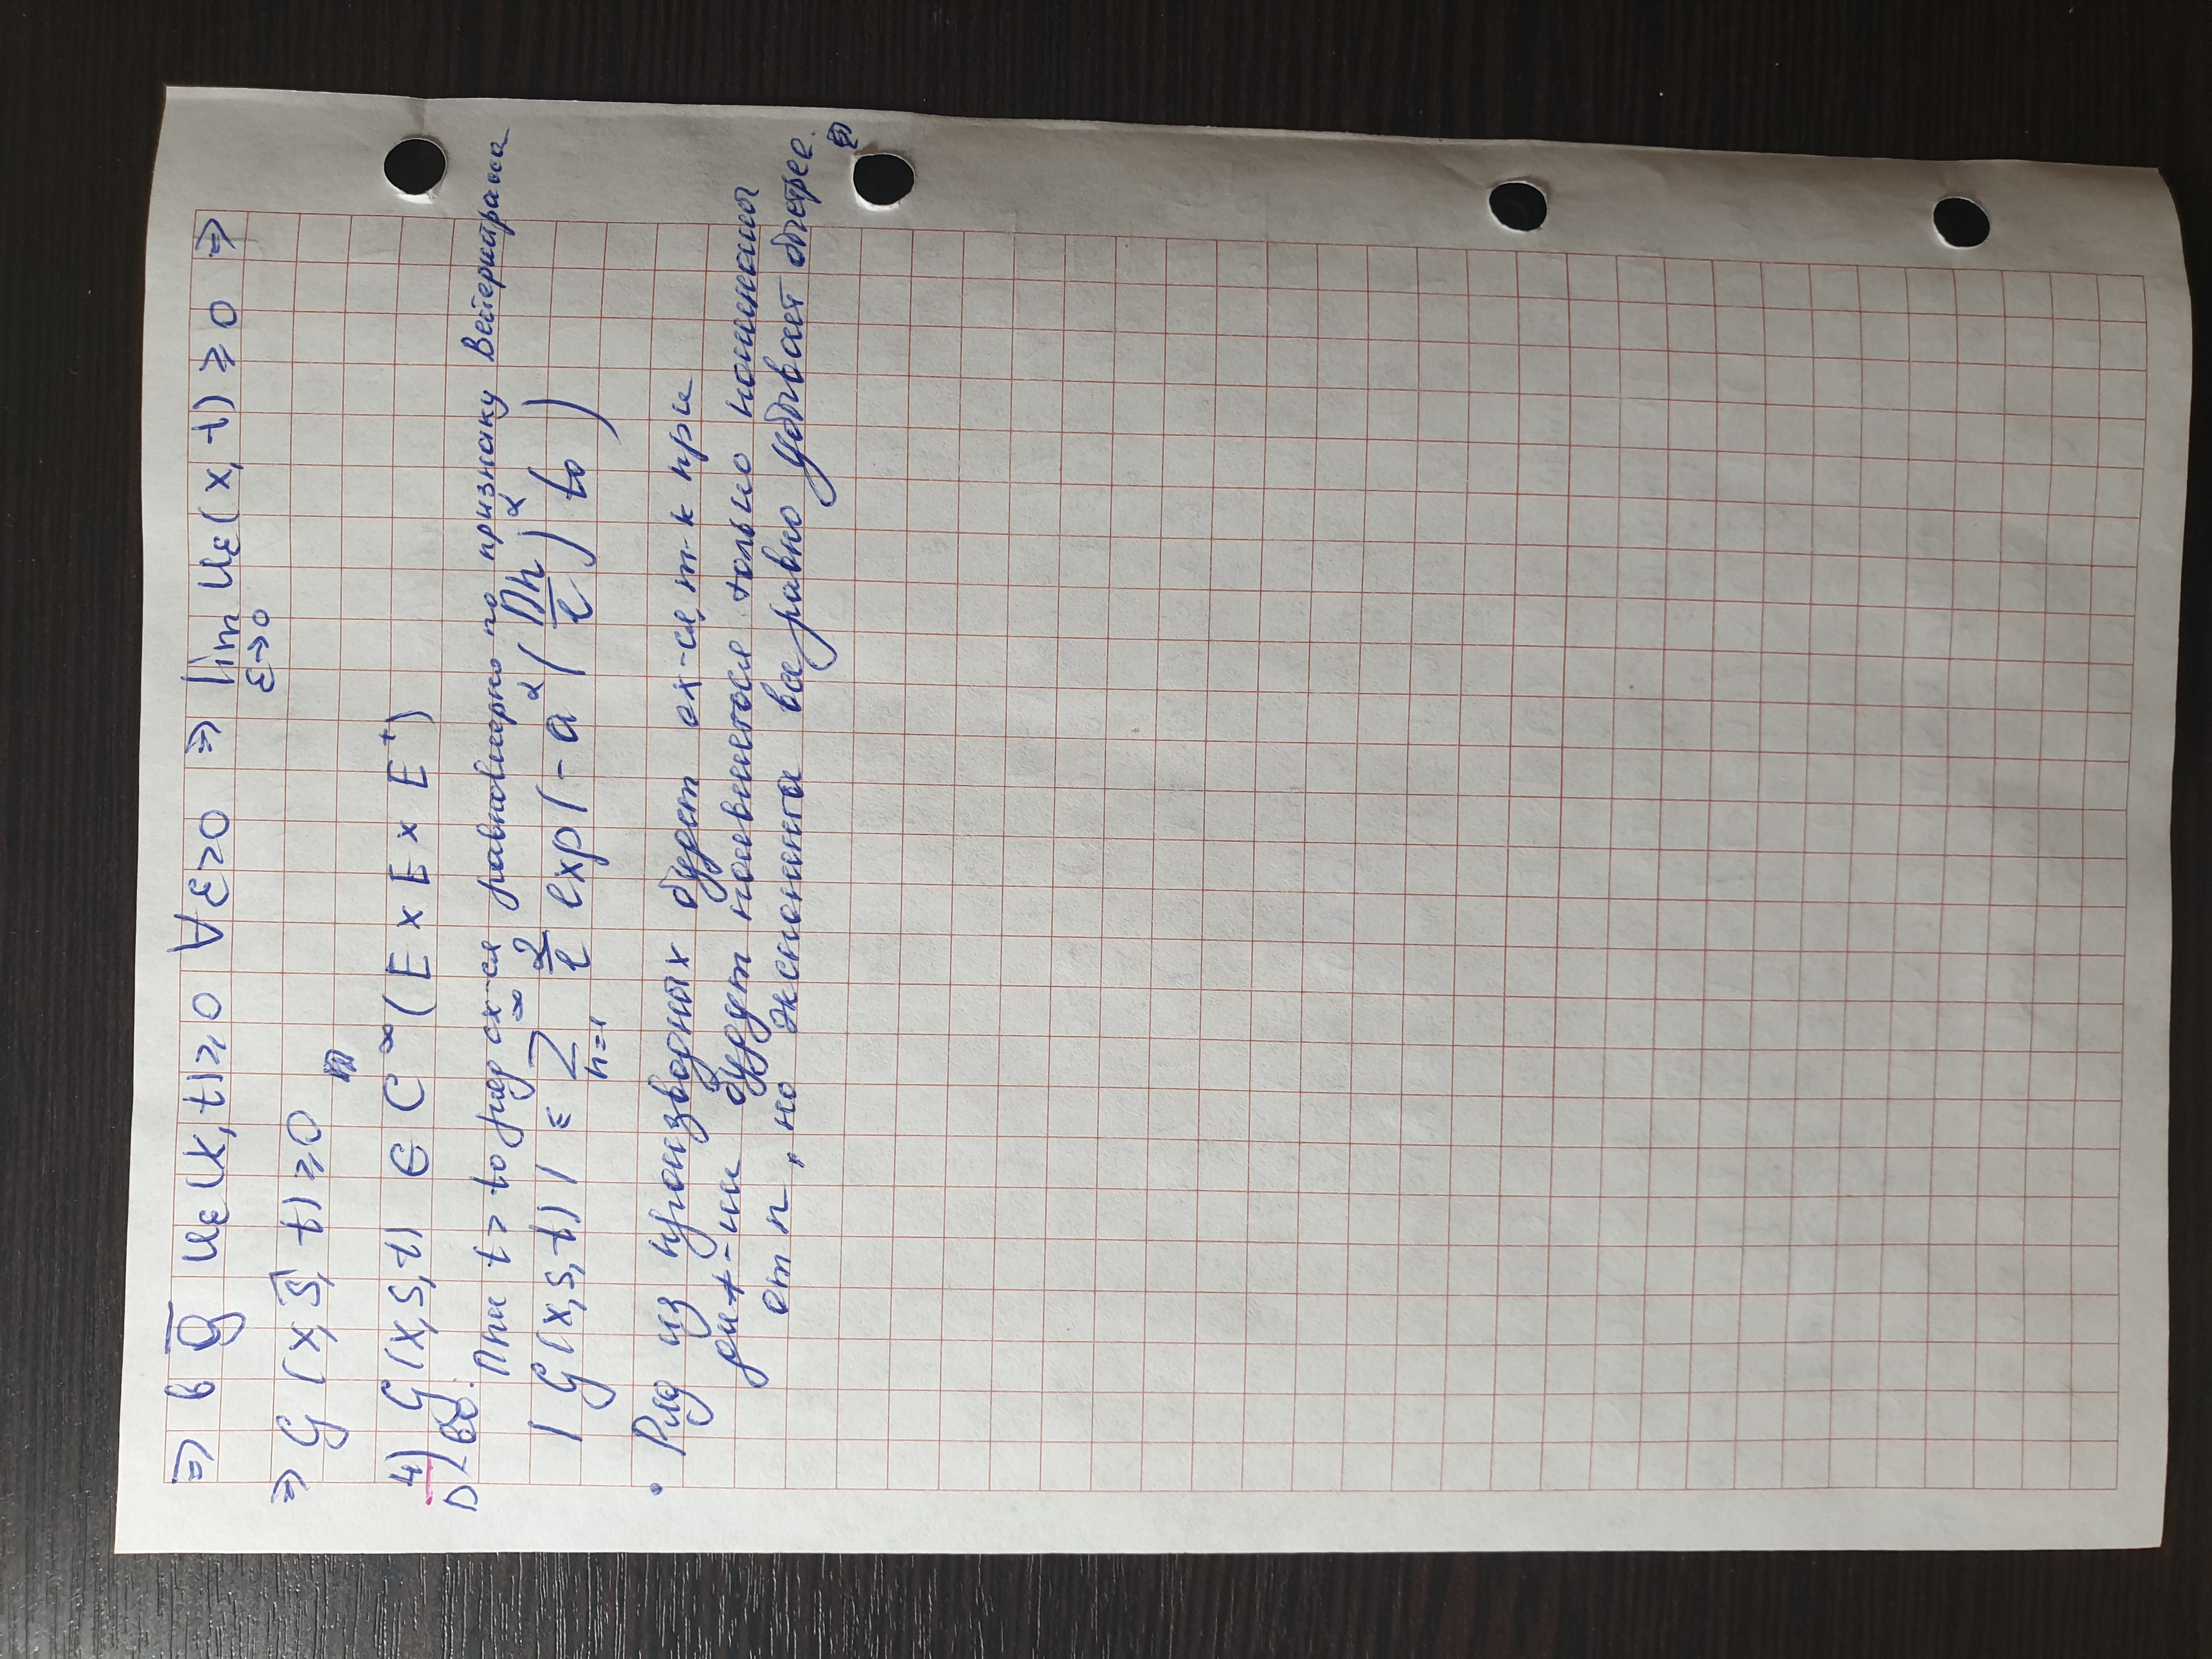 ⇒ в Q̅ u_ε(x,t)≥0 ∀ε>0 ⇒ lim_{ε→0} u_ε(x,t) ≥ 0 ⇒
⇒ G(x,s,t)≥0
4) G(x,s,t) ∈ C^∞(E×E×E⁺)
D/во: При t > t₀ ряд сх-ся равномерно по признаку Вейерштрасса
|G(x,s,t)| ≤ ∑_{n=1}^∞ 2/l exp(-a²(πn/l)²t₀)
• Ряд из производных будет сх-ся, т-к при
диф-ии будут появляться только полиномы
от n, но экспонента все равно убывает быстрее.